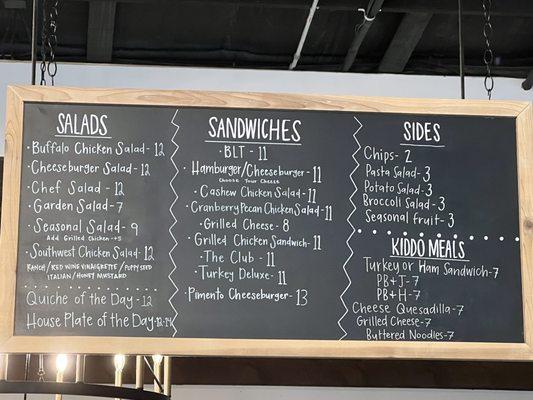 SALADS
· Buffalo Chicken Salad - 12
· Cheeseburger Salad - 12
· Chef Salad - 12
· Garden Salad - 7
· Seasonal Salad - 9
Add Grilled Chicken - +5
· Southwest Chicken Salad - 12
RANCH/RED WINE VINAIGRETTE/POPPY SEED
ITALIAN/HONEY MUSTARD
Quiche of the Day - 12
House Plate of the Day - 12-14
SANDWICHES
· BLT - 11
· Hamburger/Cheeseburger - 11
Choose Your Cheese
· Cashew Chicken Salad - 11
· Cranberry Pecan Chicken Salad - 11
· Grilled Cheese - 8
· Grilled Chicken Sandwich - 11
· The Club - 11
· Turkey Deluxe - 11
· Pimento Cheeseburger - 13
SIDES
Chips - 2
Pasta Salad - 3
Potato Salad - 3
Broccoli Salad - 3
Seasonal fruit - 3
KIDDO MEALS
Turkey or Ham Sandwich - 7
PB+J - 7
PB+H - 7
Cheese Quesadilla - 7
Grilled Cheese - 7
Buttered Noodles - 7